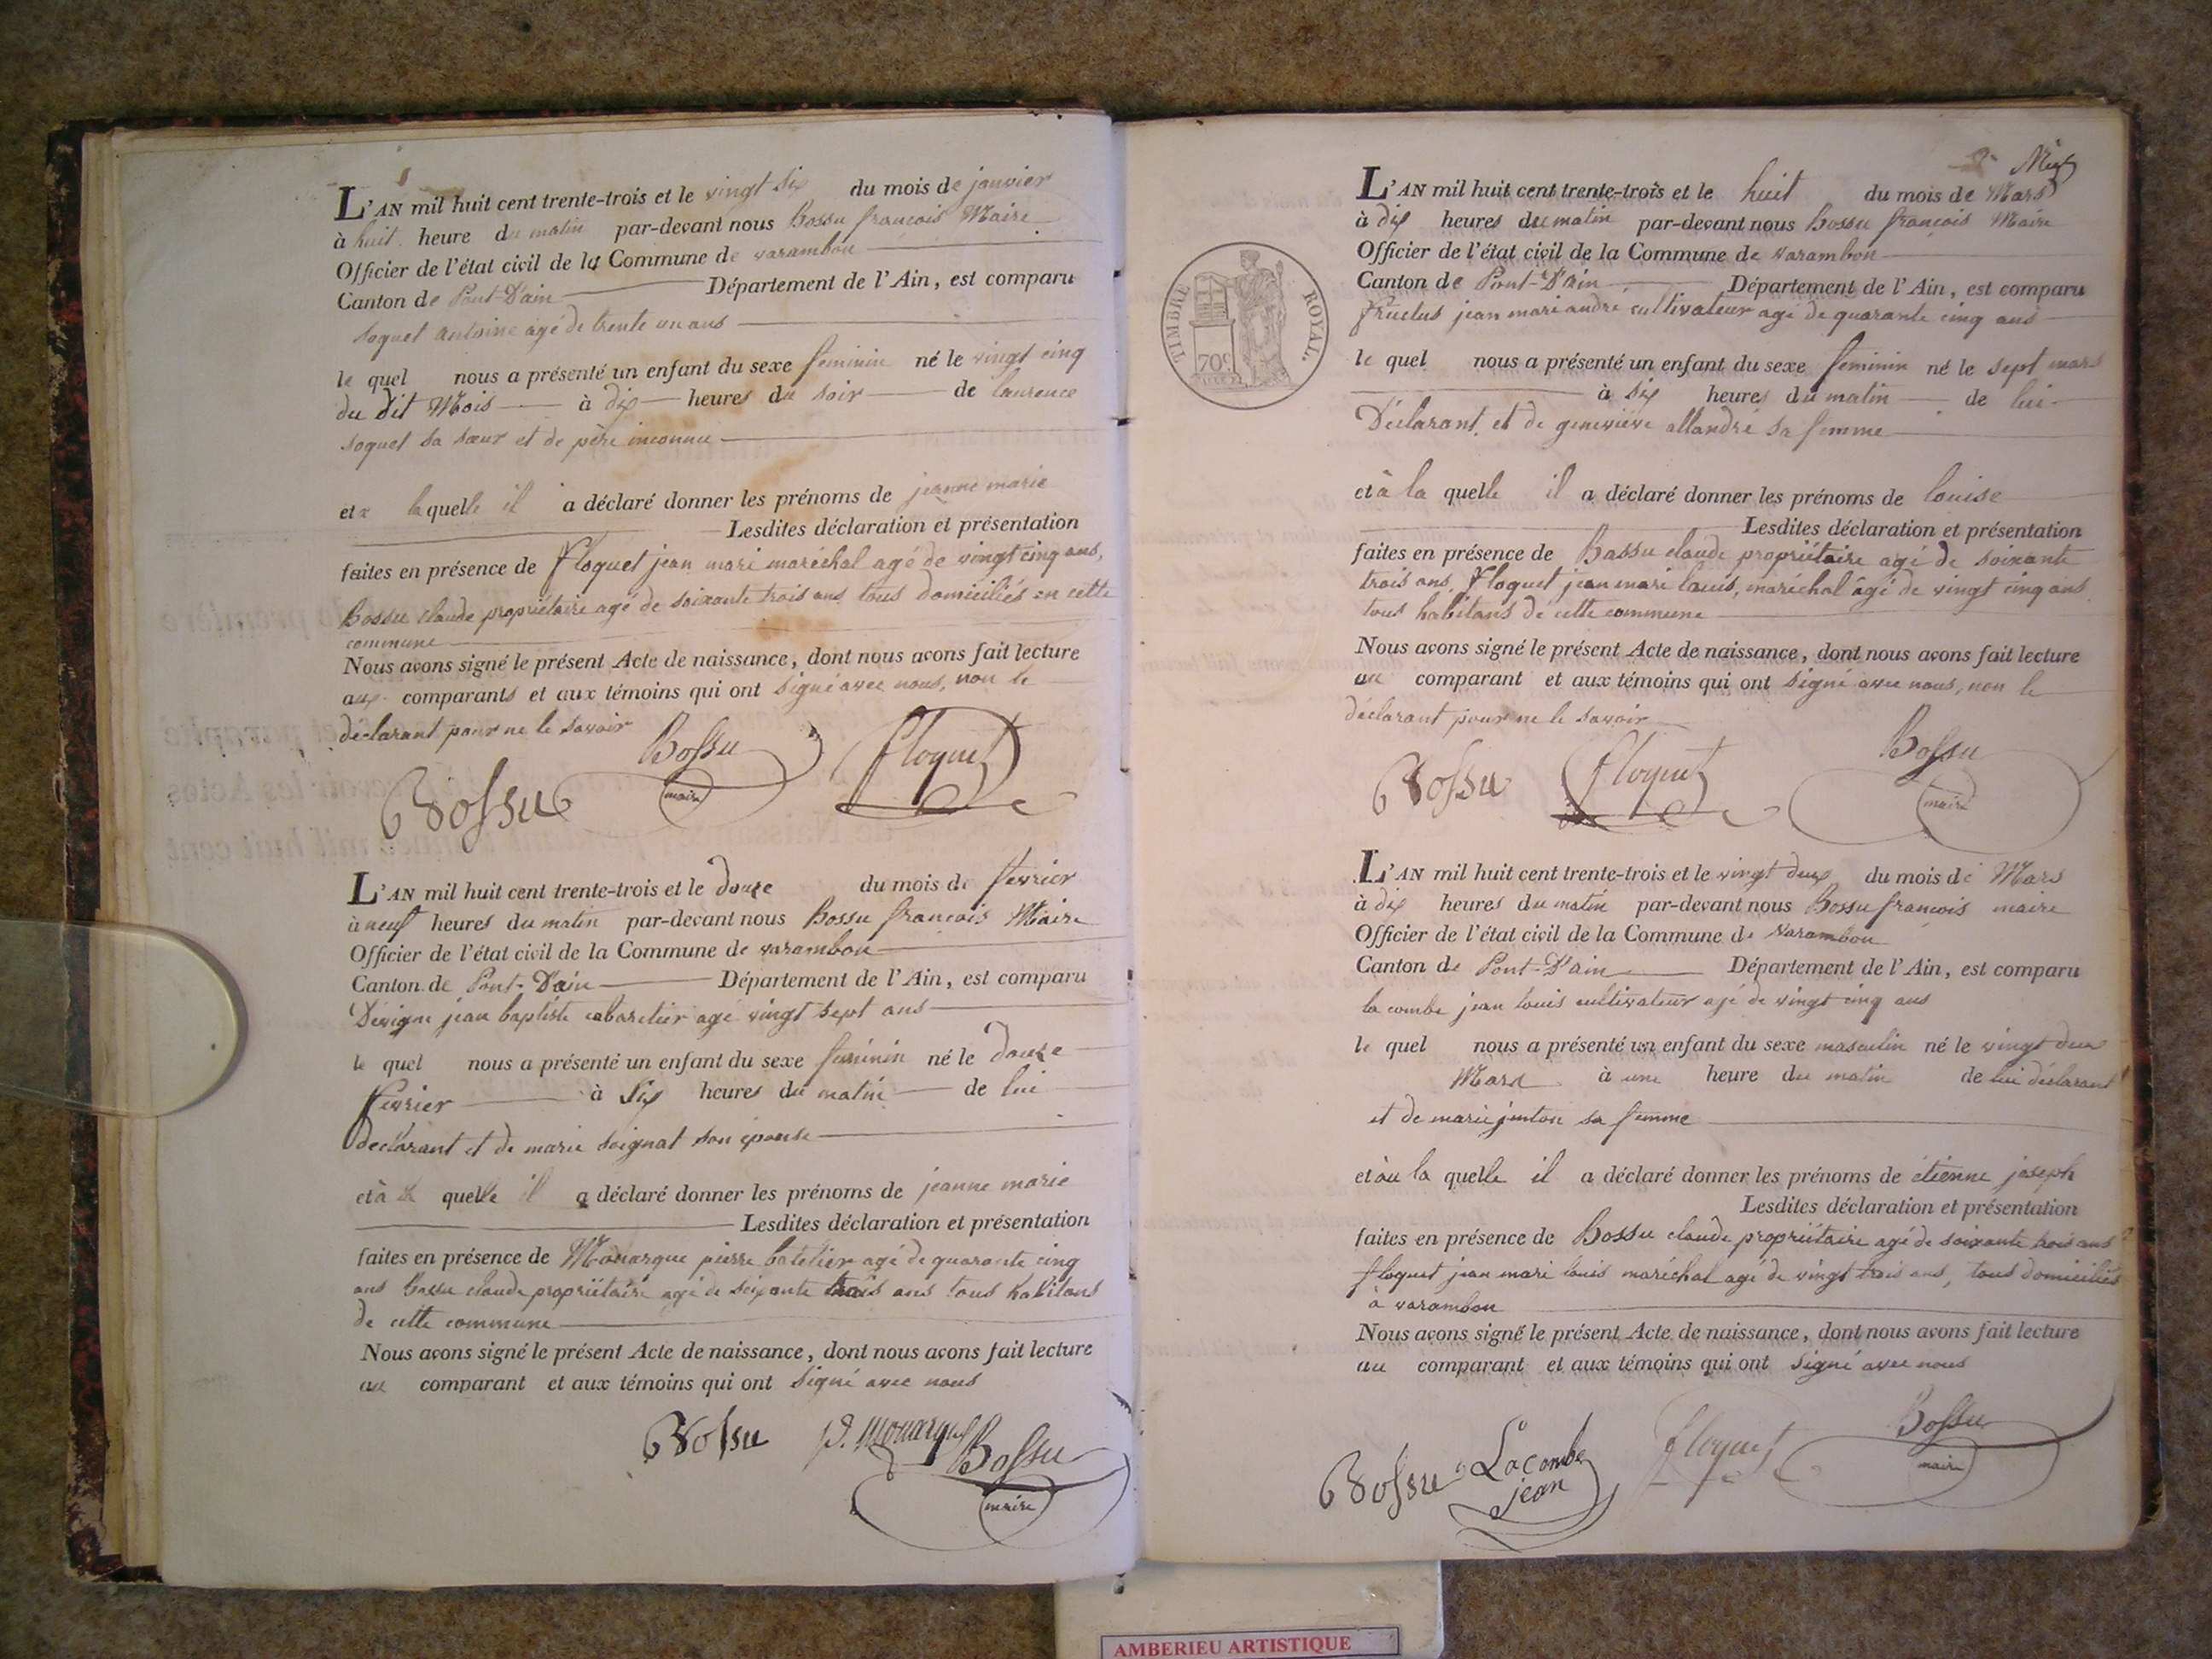 L'AN mil huit cent trente-trois et le vingt six du mois de janvier
à huit heure du matin par-devant nous Bossu francois Maire
Officier de l'état civil de la Commune de varambon
Canton de Pont-D'ain Département de l'Ain, est comparu
soquet antoine agé de trente un ans
le quel nous a présenté un enfant du sexe feminin né le vingt cinq
du dit Mois à dix heures du soir de laurence
soquet sa sœur et de père inconnu
et a laquelle il a déclaré donner les prénoms de jeanne marie
Lesdites déclaration et présentation
faites en présence de floquet jean mari maréchal agé de vingt cinq ans,
Bossu claude propriétaire agé de soixante trois ans tous domiciliés en cette
commune
Nous avons signé le présent Acte de naissance, dont nous avons fait lecture
aux comparants et aux témoins qui ont signé avec nous, non le
déclarant pour ne le savoir
Bossu
maire
floquet
Bossu
L'AN mil huit cent trente-trois et le douze du mois de fevrier
à neuf heures du matin par-devant nous Bossu francois Maire
Officier de l'état civil de la Commune de varambon
Canton de Pont-D'ain Département de l'Ain, est comparu
Devigne jean baptiste cabaretier agé vingt sept ans
le quel nous a présenté un enfant du sexe feminin né le douze
fevrier à six heures du matin de lui
declarant et de marie soignat son épouse
et à la quelle il a déclaré donner les prénoms de jeanne marie
Lesdites déclaration et présentation
faites en présence de Monarque pierre batelier agé de quarante cinq
ans Bossu claude propriétaire agé de soixante trois ans tous habitans
de cette commune
Nous avons signé le présent Acte de naissance, dont nous avons fait lecture
au comparant et aux témoins qui ont signé avec nous
Bossu
P. monarque
Bossu
maire
L'AN mil huit cent trente-trois et le huit du mois de Mars
à dix heures du matin par-devant nous Bossu françois Maire
Officier de l'état civil de la Commune de varambon
Canton de Pont-D'ain Département de l'Ain, est comparu
fructus jean mari andré cultivateur agé de quarante cinq ans
le quel nous a présenté un enfant du sexe feminin né le sept mars
à six heures du matin de lui
Déclarant et de geneviève allandré sa femme
et à la quelle il a déclaré donner les prénoms de louise
Lesdites déclaration et présentation
faites en présence de Bassu claude propriétaire agé de soixante
trois ans, floquet jean mari louis, maréchal âgé de vingt cinq ans
tous habitans de cette commune
Nous avons signé le présent Acte de naissance, dont nous avons fait lecture
au comparant et aux témoins qui ont signé avec nous, non le
déclarant pour ne le savoir
Bossu
floquet
Bossu
maire
TIMBRE ROYAL.
70c
L'AN mil huit cent trente-trois et le vingt deux du mois de Mars
à dix heures du matin par-devant nous Bossu francois maire
Officier de l'état civil de la Commune de varambon
Canton de Pont-D'ain Département de l'Ain, est comparu
la combe jean louis cultivateur agé de vingt cinq ans
le quel nous a présenté un enfant du sexe masculin né le vingt deux
Mars à une heure du matin de lui déclarant
et de marie jenton sa femme
et àu la quelle il a déclaré donner les prénoms de étienne joseph
Lesdites déclaration et présentation
faites en présence de Bossu claude propriétaire agé de soixante trois ans
floquet jean mari louis maréchal agé de vingt trois ans, tous domiciliés
à varambon
Nous avons signé le présent Acte de naissance, dont nous avons fait lecture
au comparant et aux témoins qui ont signé avec nous
Bossu
Lacombe
jean
floquet
Bossu
maire
AMBERIEU ARTISTIQUE